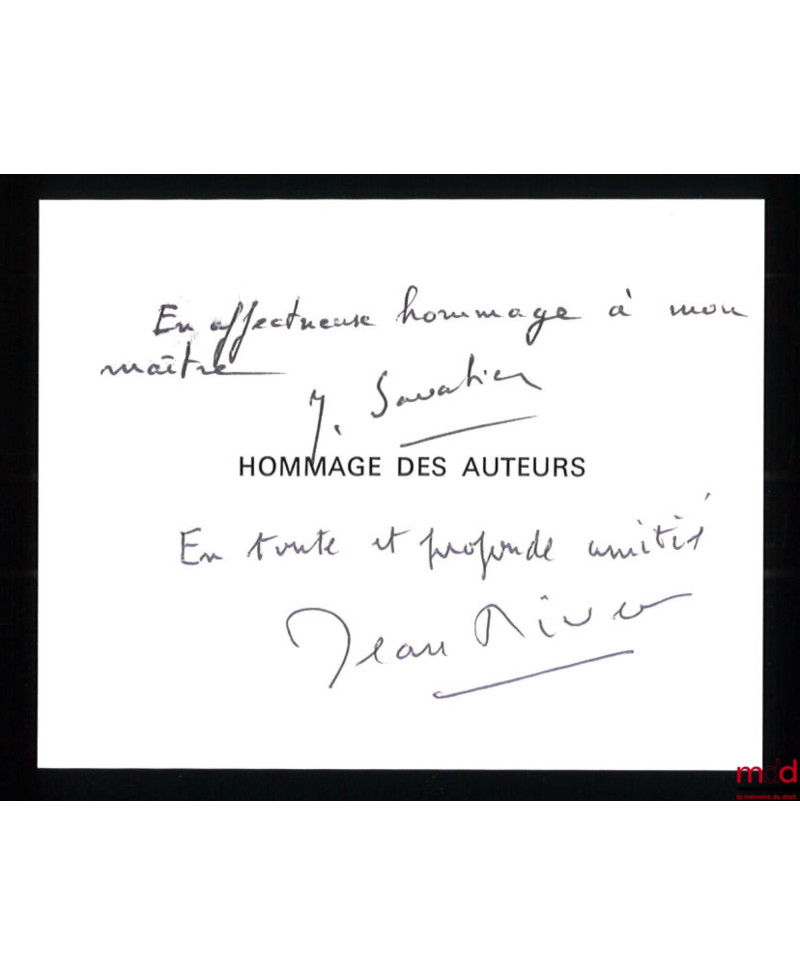 En affectueuse hommage à mon
maître
J. Savatier
HOMMAGE DES AUTEURS
En toute et profonde amitié
Jean Rivero
mdd
la mémoire du droit